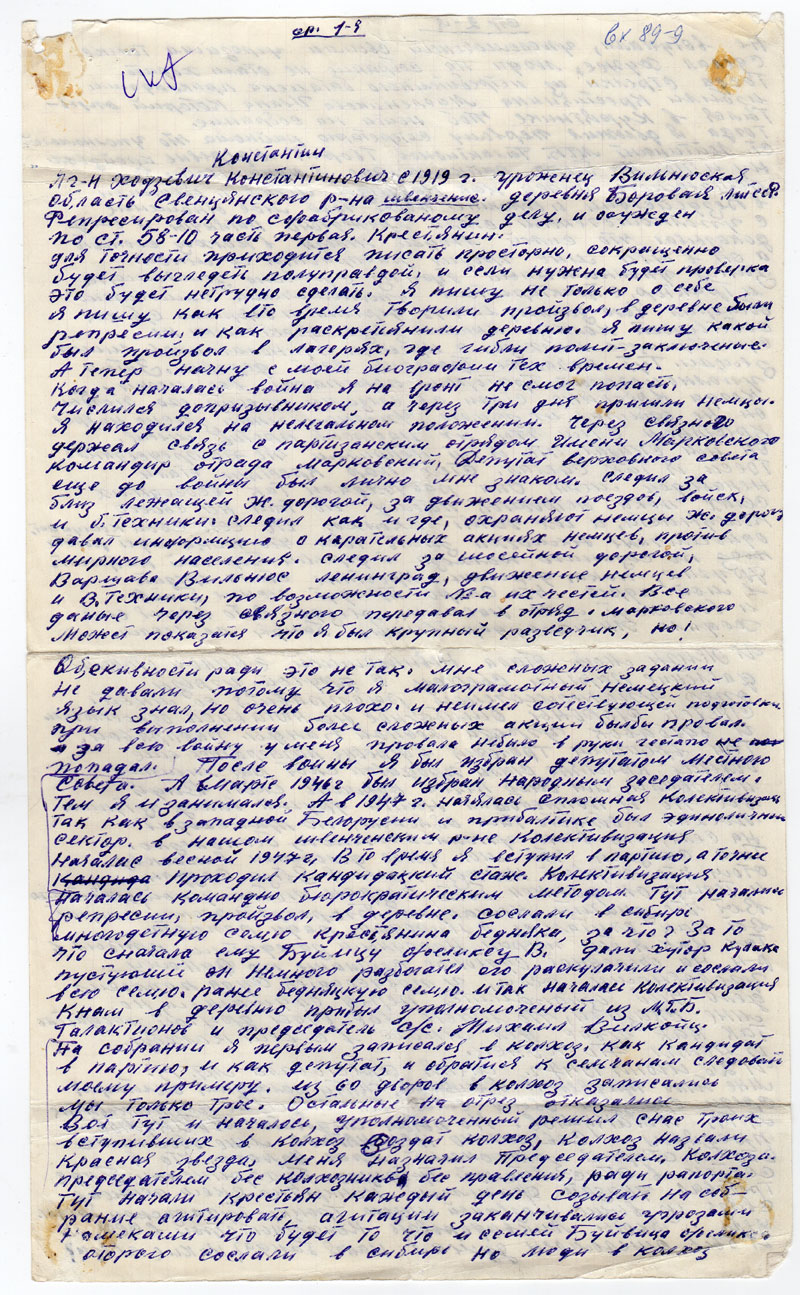 ср. 1-я
Вх 89-9
Константин
Ходзевич Константинович с 1919 г. уроженец Вильнюская
область Свенцянского р-на швенчение. деревня Боровая Лит ССР.
Репресирован по сфабрикованому делу, и осужден
по ст. 58-10 часть первая. Крестянин.
для точности приходится писать просторно, сокращенно
будет выгледеть полуправдой, и если нужна будет проверка
это будет нетрудно сделать. Я пишу не только о себе
я пишу как в то время творили произвол, в деревне были
репресии, и как раскретиянили деревню. Я пишу какой
был произвол в лагерях, где гибли полит-заключеные.
А Тепер начну с моей биографии тех времен.
Когда началась война я на фронт не смог попасть,
Числился допризывником, а через три дня пришли немцы.
Я находился на нелегальном положении. Через связного
держал связь с партизанским отрядом имени Марковского
командир отряда Марковский, Депутат верховного совета
еще до войны был лично мне знаком. следил за
близ лежащей ж. дорогой, за движением поездов, войск,
и б. техники. следил как и где, охраняют немцы ж. дорогу
давал информцию о карательных акциях немцев, против
мирного населения. следил за шоссейной дорогой,
Варшава Вильнюс Ленинград, движение немцев
и в. техники, по возможности №а их честей. Все
даные через связного передавал в отряд. Марковского
Может показатся что я был крупный разведчик, но!
Обективности ради это не так. мне сложных задании
не давали потому что я малограмотный немецкий
язык знал, но очень плохо. и неимел сотествующей подготовки
при выполнении более сложных акции былбы провал.
и за всю войну у меня провала небыло в руки гестапо не
попадал. После войны я был избран депутатом местного
Совета. А в марте 1946г был избран народным заседателем.
Тем я и занимался. А в 1947 г. началась сплошная Колективизац
так как в западной Белорусии и прибалтике был единоличный
сектор. в нашом швенченским р-не Колективизация
началас весной 1947 г, В то время я вступил в партию, а точнее
Кандида проходил Кандидацкий стаж. Колективизация
началась командно бюрократическим методом. Тут начались
репресии, произвол, в деревне. сослали в сибирь
многодетную семю крестянина бедняка, за что? За то
что сначала ему Буйвицу Феликсу В. дали хутор Кулака
пустующий он немного разбогател его раскулачили и сослали
всю семю. ранее бедняцкую семю. и так началась Колективизация
К нам в деревню прибыл уполномоченый из М.Г.Б.
Галактионов и председатель с/с. Михаил Вилкойц.
На собрании я первым записался в колхоз. как кандидат
в партию, и как депутат, и обратися к селчанам следовать
моему примеру. из 60 дворов в колхоз записались
мы только трое. Остальные на отрез отказались
Вот тут и началось, уполномоченный решил с нас троих
вступивших в колхоз создать колхоз, колхоз назвали
Красная звезда, меня назначил председателем. Колхоза.
председателем бес колхозников, бес правления, ради рапорта.
Тут начали крестьян каждый день созывать на соб-
рание агитировать, агитации заканчивались угрозами
намеками что будет то что и семей Буйвица Феликса
оторого сослали в сибирь но люди в колхоз